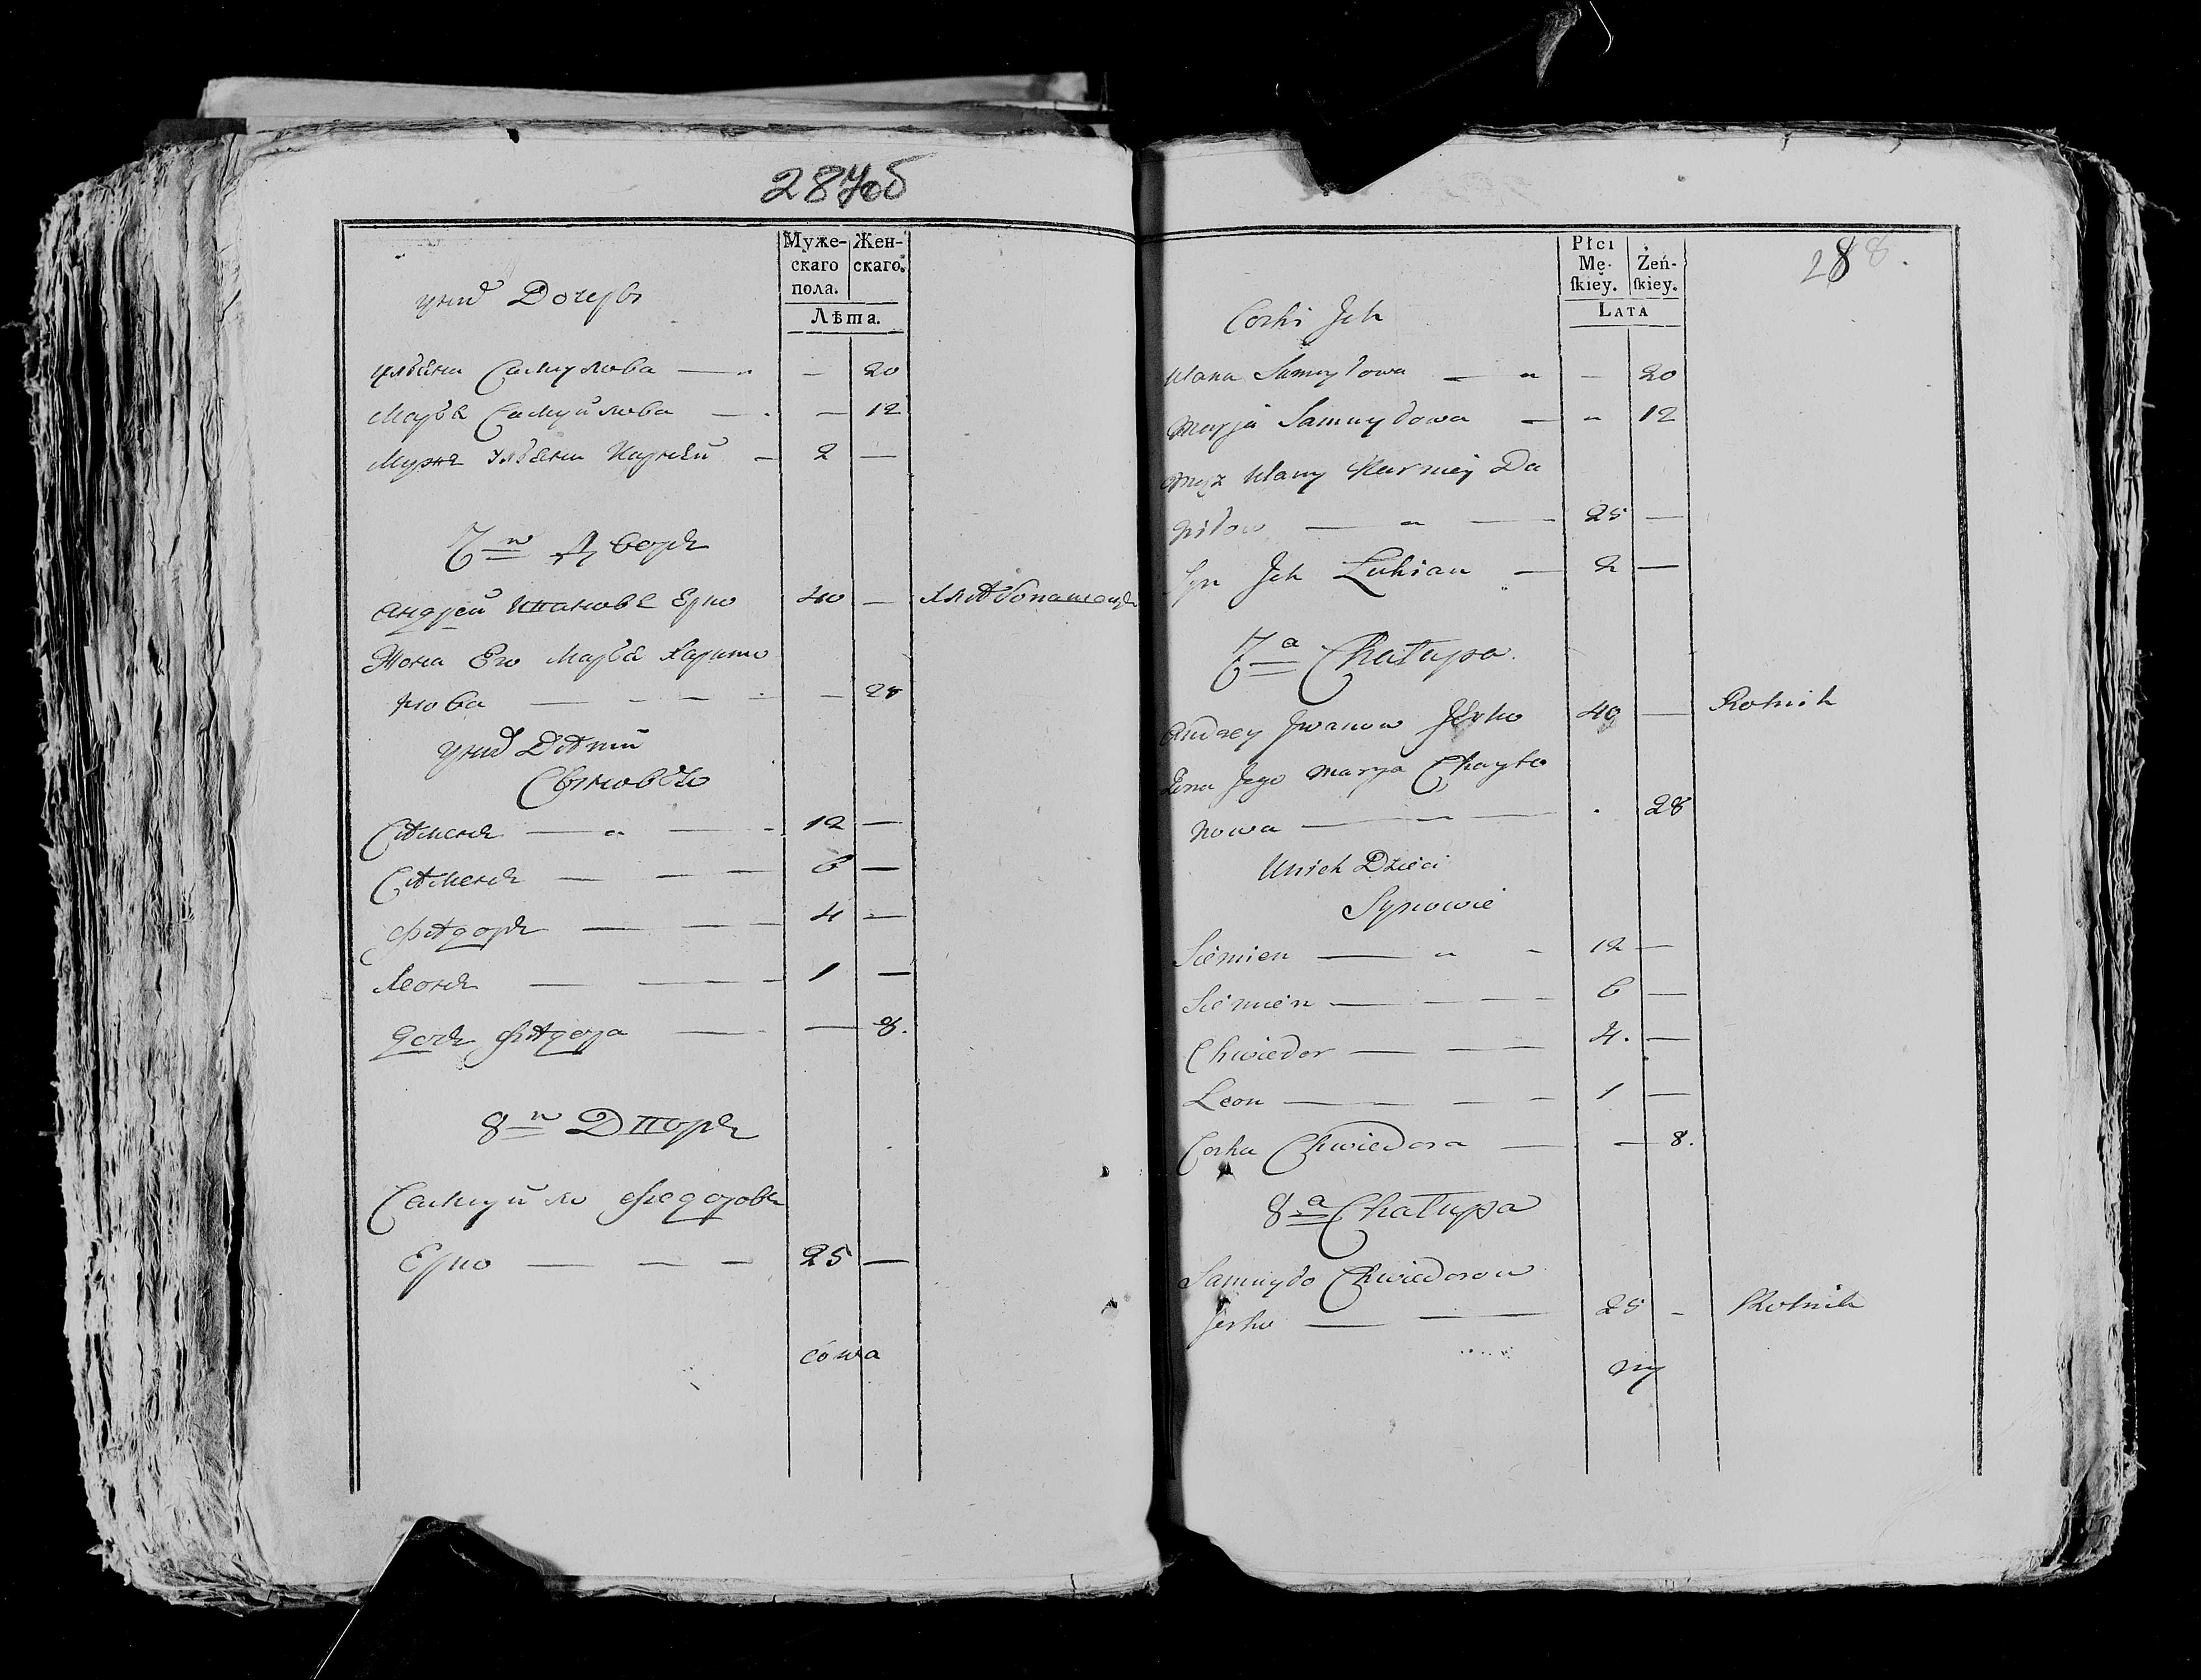 287об
Муже-
скаго
пола.
Жен-
скаго.
Лѣта.
унихъ Дочеръ
Ульѣна Самуйлова — 20
Марья Самуйлова — 12
Мужъ Ульѣни Карнѣй 2 —
7й Дворъ
Андрей Ивановъ Ерко 40 —
Жона Его Марья Харито
нова — 28
унихъ Дѣтій
Сыновьѣ
Сѣменъ 12 —
Сѣменъ 6 —
Фѣдоръ 4 —
Леонъ 1 —
дочь Фѣдора — 8.
8й Дворъ
Самуйло Федоровъ
Ерко 25 —
288.
Płci
Mę-
ſkiey.
Żeń-
ſkiey.
Lata
Corki Ich
Ulana Samuyłowa — 20
Marja Samuyłowa — 12
Mąż Ulany Karniey Da
niłow 25 —
Syn Ich Łukian 2 —
7a Chałupa
Andrzey Iwanow Jerko 40 — Rolnik
Żona Jego Marya Charyto
nowa 28
Unich Dzieci
Synowie
Siemien 12 —
Siemien 6 —
Chwiedor 4. —
Leon 1 —
Corka Chwiedora — 8.
8a Chałupa
Samuyło Chwiedorow
Jerko 25 - Rolnik